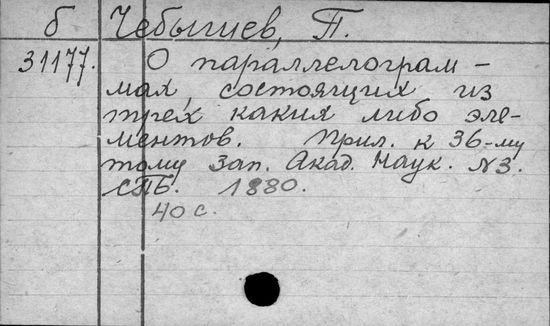 б Чебышев, П.
31177. О параллелограм-
мах, состоящих из
трех каких либо эле-
ментов. Прил. к 36-му
тому Зап. Акад. Наук. №3.
СПБ. 1880.
40 с.